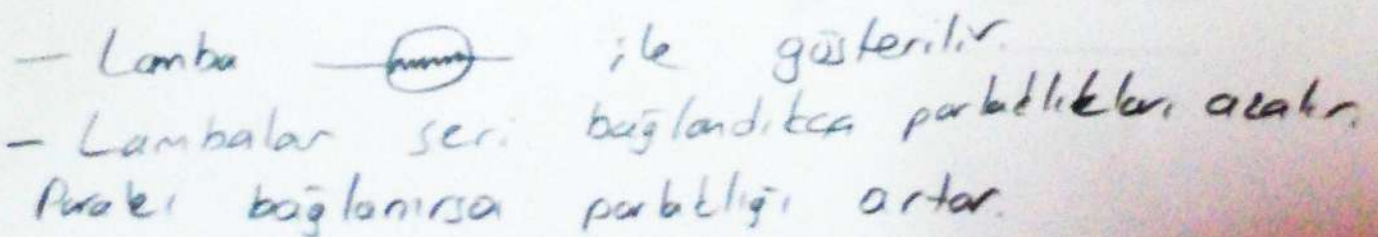 - Lamba ile gösterilir.
- Lambalar seri bağlandıkça parlaklıkları azalır.
Paralel bağlanırsa parlaklığı artar.